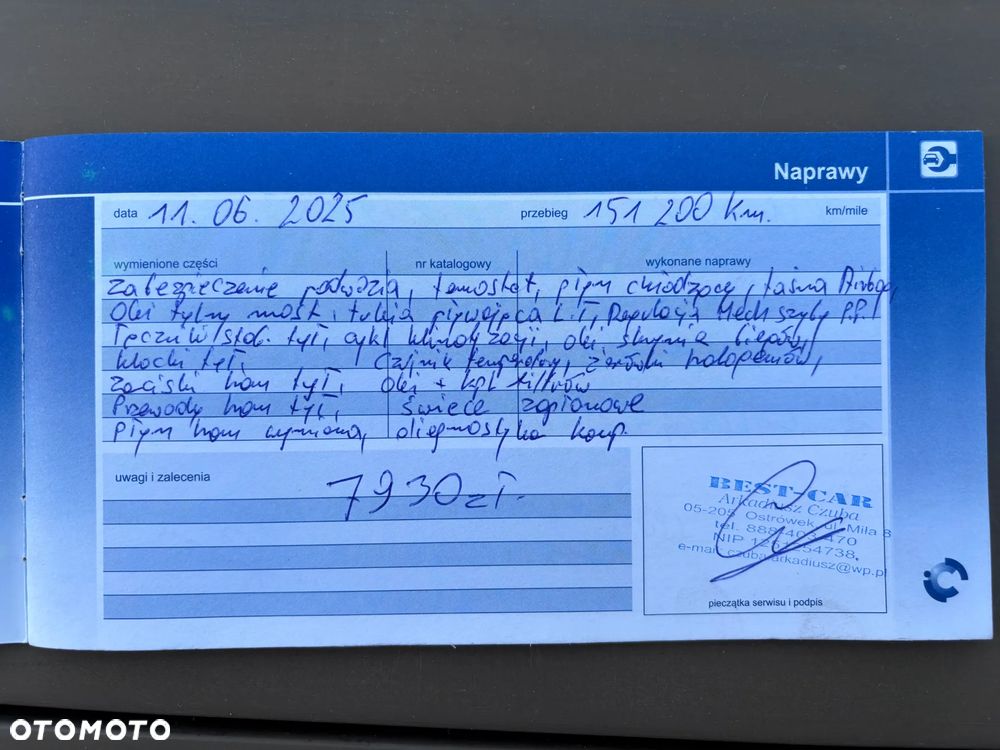 Naprawy
data 11. 06. 2025 przebieg 151 200 km. km/mile
wymienione części nr katalogowy wykonane naprawy
Zabezpieczenie podwozia, termostat, płyn chłodzący, taśma Airbag,
Olej tylny most, tuleja pływająca L.T, Regulacja Mech szyby P.P.
Łączniki stab. tył, cykl klimatyzacji, olej skrzynia biegów,
Klocki tył, Czujnik temperatury, żarówki
Zaciski ham tył, Olej + kpl filtrów
Przewody ham tył, Świece zapłonowe
Płyn ham wymiana, diagnostyka komp.
uwagi i zalecenia
7930 zł.
BEST-CAR
Arkadiusz Czuba
05-205 Ostrówek, ul. Miła 8
tel. 888 470
NIP
e-mail: czuba.arkadiusz@wp.pl
pieczątka serwisu i podpis
OTOMOTO